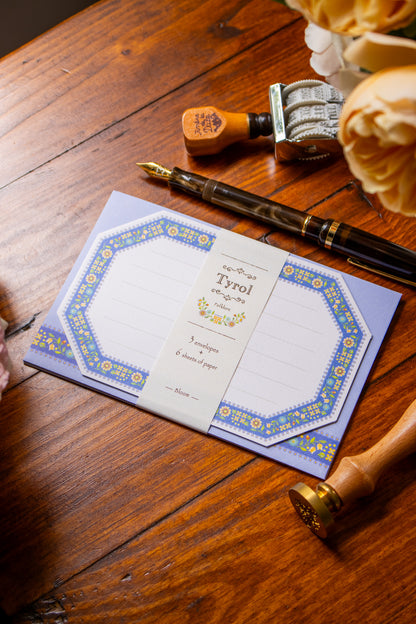 Tyrol
folklore
3 envelopes
+
6 sheets of paper
— Bloom —